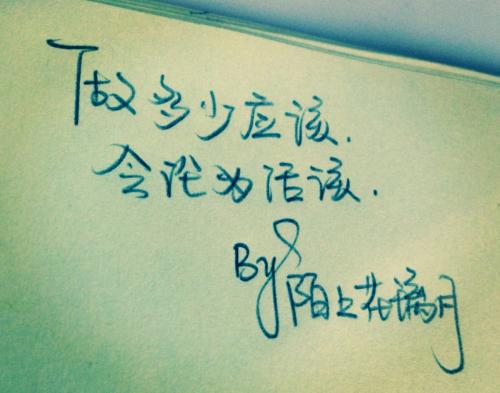 做多少应该.
会沦为活该.
By 陌上花漓月